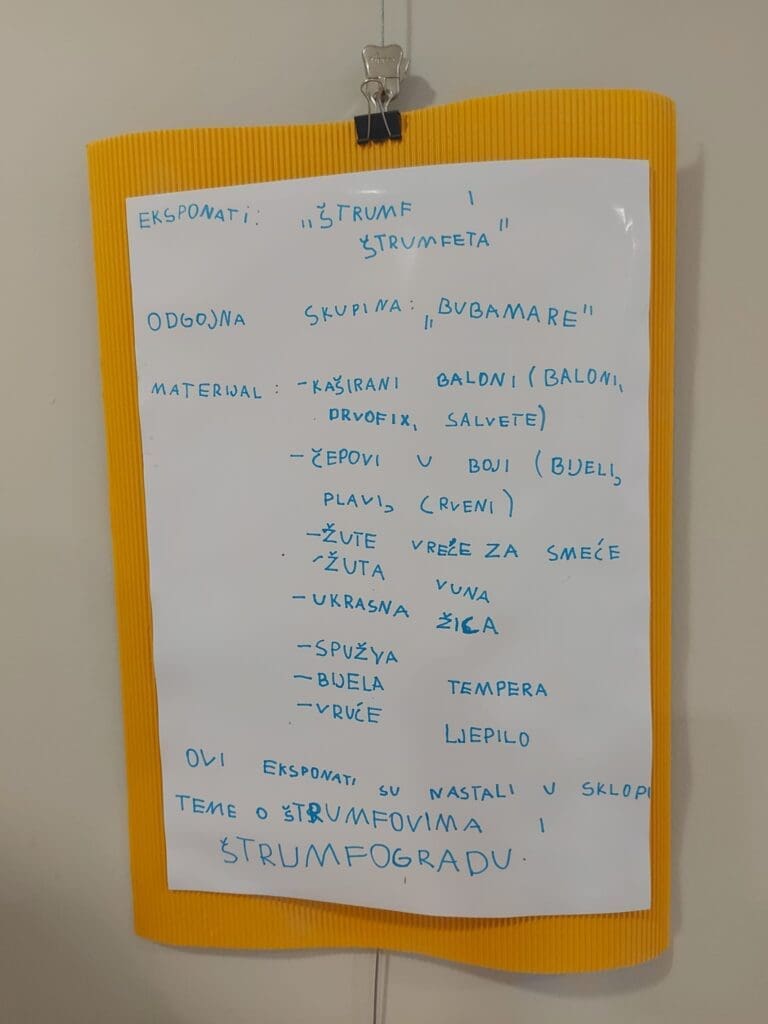 EKSPONATI: "ŠTRUMF I
ŠTRUMFETA"
ODGOJNA SKUPINA: "BUBAMARE"
MATERIJAL: - KAŠIRANI BALONI (BALONI,
DRVOFIX, SALVETE)
- ČEPOVI U BOJI (BIJELI,
PLAVI, CRVENI)
- ŽUTE VREĆE ZA SMEĆE
- ŽUTA VUNA
- UKRASNA ŽICA
- SPUŽVA
- BIJELA TEMPERA
- VRUĆE LJEPILO
OVI EKSPONATI SU NASTALI U SKLOPU
TEME O ŠTRUMFOVIMA I
ŠTRUMFOGRADU.